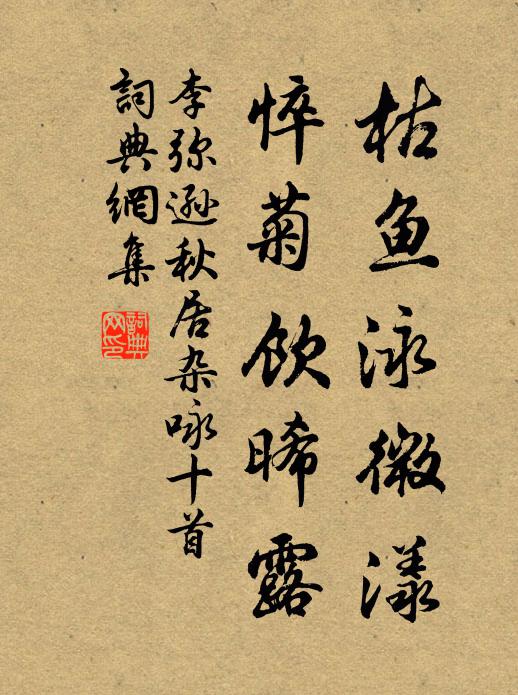 枯鱼泳微漾
悴菊饮晞露
李弥逊秋居杂咏十首
詞典網集
詞典網印